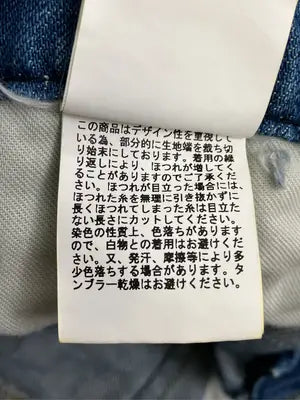 この商品はデザイン性を重視して
いる為、部分的に生地端を裁ち切
り始末にしております。着用の繰
り返しにより、ほつれが増してく
ることがありますのでご了承くだ
さい。ほつれが目立った場合には、
ほつれた糸を無理に引き抜かずに
長くほつれてしまった糸は目立た
ない長さにカットしてください。
染色の性質上、色落ちがあります
ので、白物との着用はお避けくだ
さい。又、発汗、摩擦等により多
少色落ちする場合があります。タ
ンブラー乾燥はお避けください。